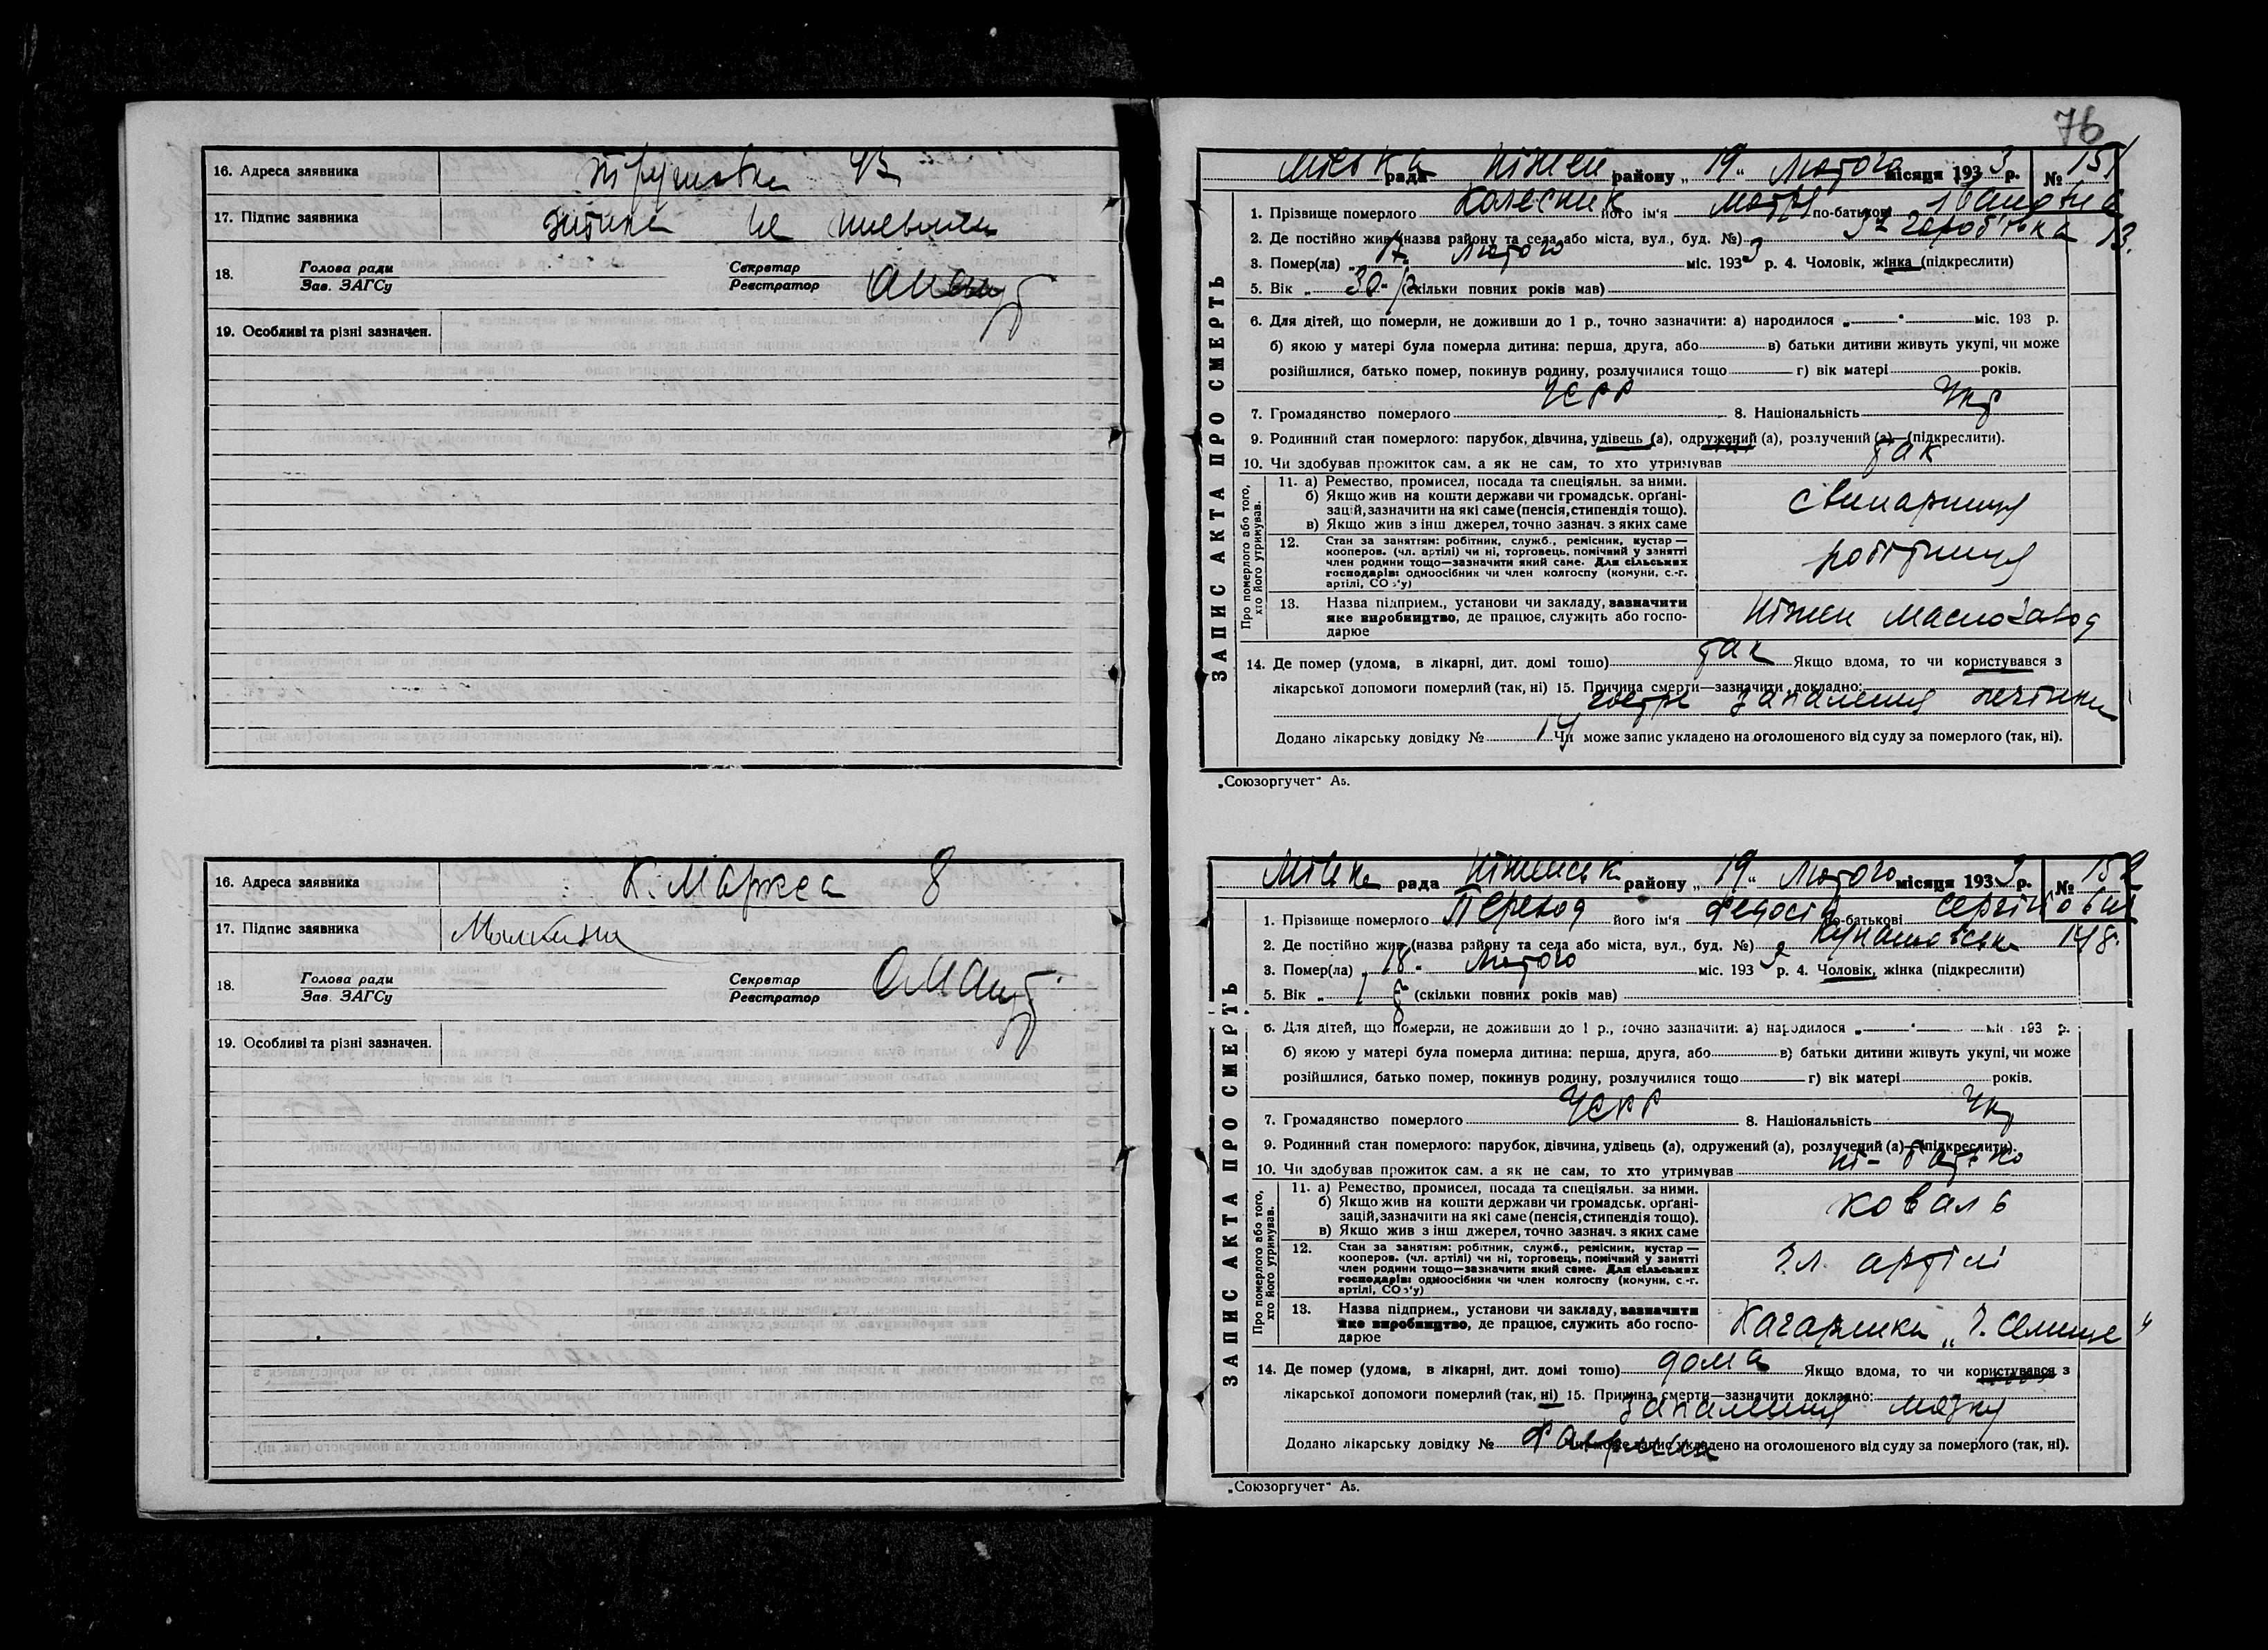 76
16. Адреса заявника
17. Підпис заявника
18. Голова ради Секретар
Зав. ЗАГСу Реєстратор
19. Особливі та різні зазначен.
ЗАПИС АКТА ПРО СМЕРТЬ
Міська рада Ніжен району „19“ Лютого місяця 1933 р. № 151
1. Прізвище померлого Колесник його ім‘я Мотря по-батькові Івановна
2. Де постійно жив (назва району та села або міста, вул., буд. №) 13.
3. Помер(ла) „17“ Лютого міс. 1933 р. 4. Чоловік, жінка (підкреслити)
5. Вік „30“ р (скільки повних років мав)
6. Для дітей, що померли, не доживши до 1 р., точно зазначити: а) народилося „ “ міс. 193 р.
б) якою у матері була померла дитина: перша, друга, або в) батьки дитини живуть укупі, чи може
розійшлися, батько помер, покинув родину, розлучилися тощо г) вік матері років.
7. Громадянство померлого УСРР 8. Національність Укр
9. Родинний стан померлого: парубок, дівчина, удівець (а), одружений (а), розлучений (а)—(підкреслити).
10. Чи здобував прожиток сам, а як не сам, то хто утримував так
Про померлого або того, хто його утримував.
11. а) Ремество, промисел, посада та спеціяльн. за ними.
б) Якщо жив на кошти держави чи громадськ. орґані-
зацій, зазначити на які саме (пенсія, стипендія тощо).
в) Якщо жив з інш джерел, точно зазнач. з яких саме
свинарниця
12. Стан за заняттям: робітник, служб., ремісник, кустар —
кооперов. (чл. артілі) чи ні, торговець, помічний у занятті
член родини тощо—зазначити який саме. Для сільських
господарів: одноосібник чи член колгоспу (комуни, с.-г.
артілі, СОЗ‘у)
робітниця
13. Назва підприєм., установи чи закладу, зазначити
яке виробництво, де працює, служить або госпо-
дарює
Ніжен маслозавод
14. Де помер (удома, в лікарні, дит. домі тощо) так Якщо вдома, то чи користувався з
лікарської допомоги померлий (так, ні) 15. Причина смерти—зазначити докладно:
гостре запалення печінки
Додано лікарську довідку № Чи може запис укладено на оголошеного від суду за померлого (так, ні).
„Союзоргучет“ А5.
16. Адреса заявника К. Маркса 8
17. Підпис заявника
18. Голова ради Секретар
Зав. ЗАГСу Реєстратор
19. Особливі та різні зазначен.
ЗАПИС АКТА ПРО СМЕРТЬ
Міська рада Ніженськ району „19“ Лютого місяця 1933 р. № 152
1. Прізвище померлого Переход його ім‘я Федосій по-батькові Сергійович
2. Де постійно жив (назва району та села або міста, вул., буд. №) Кунашовська 148.
3. Помер(ла) „18“ Лютого міс. 1933 р. 4. Чоловік, жінка (підкреслити)
5. Вік „ (скільки повних років мав)
6. Для дітей, що померли, не доживши до 1 р., точно зазначити: а) народилося „ “ міс. 193 р.
б) якою у матері була померла дитина: перша, друга, або в) батьки дитини живуть укупі, чи може
розійшлися, батько помер, покинув родину, розлучилися тощо г) вік матері років.
7. Громадянство померлого УСРР 8. Національність Укр
9. Родинний стан померлого: парубок, дівчина, удівець (а), одружений (а), розлучений (а)—(підкреслити).
10. Чи здобував прожиток сам, а як не сам, то хто утримував ні - батько
Про померлого або того, хто його утримував.
11. а) Ремество, промисел, посада та спеціяльн. за ними.
б) Якщо жив на кошти держави чи громадськ. орґані-
зацій, зазначити на які саме (пенсія, стипендія тощо).
в) Якщо жив з інш джерел, точно зазнач. з яких саме
коваль
12. Стан за заняттям: робітник, служб., ремісник, кустар —
кооперов. (чл. артілі) чи ні, торговець, помічний у занятті
член родини тощо—зазначити який саме. Для сільських
господарів: одноосібник чи член колгоспу (комуни, с.-г.
артілі, СОЗ‘у)
чл. артілі
13. Назва підприєм., установи чи закладу, зазначити
яке виробництво, де працює, служить або госпо-
дарює
14. Де помер (удома, в лікарні, дит. домі тощо) дома Якщо вдома, то чи користувався з
лікарської допомоги померлий (так, ні) 15. Причина смерти—зазначити докладно:
запалення мозку
Додано лікарську довідку № Чи може запис укладено на оголошеного від суду за померлого (так, ні).
„Союзоргучет“ А5.